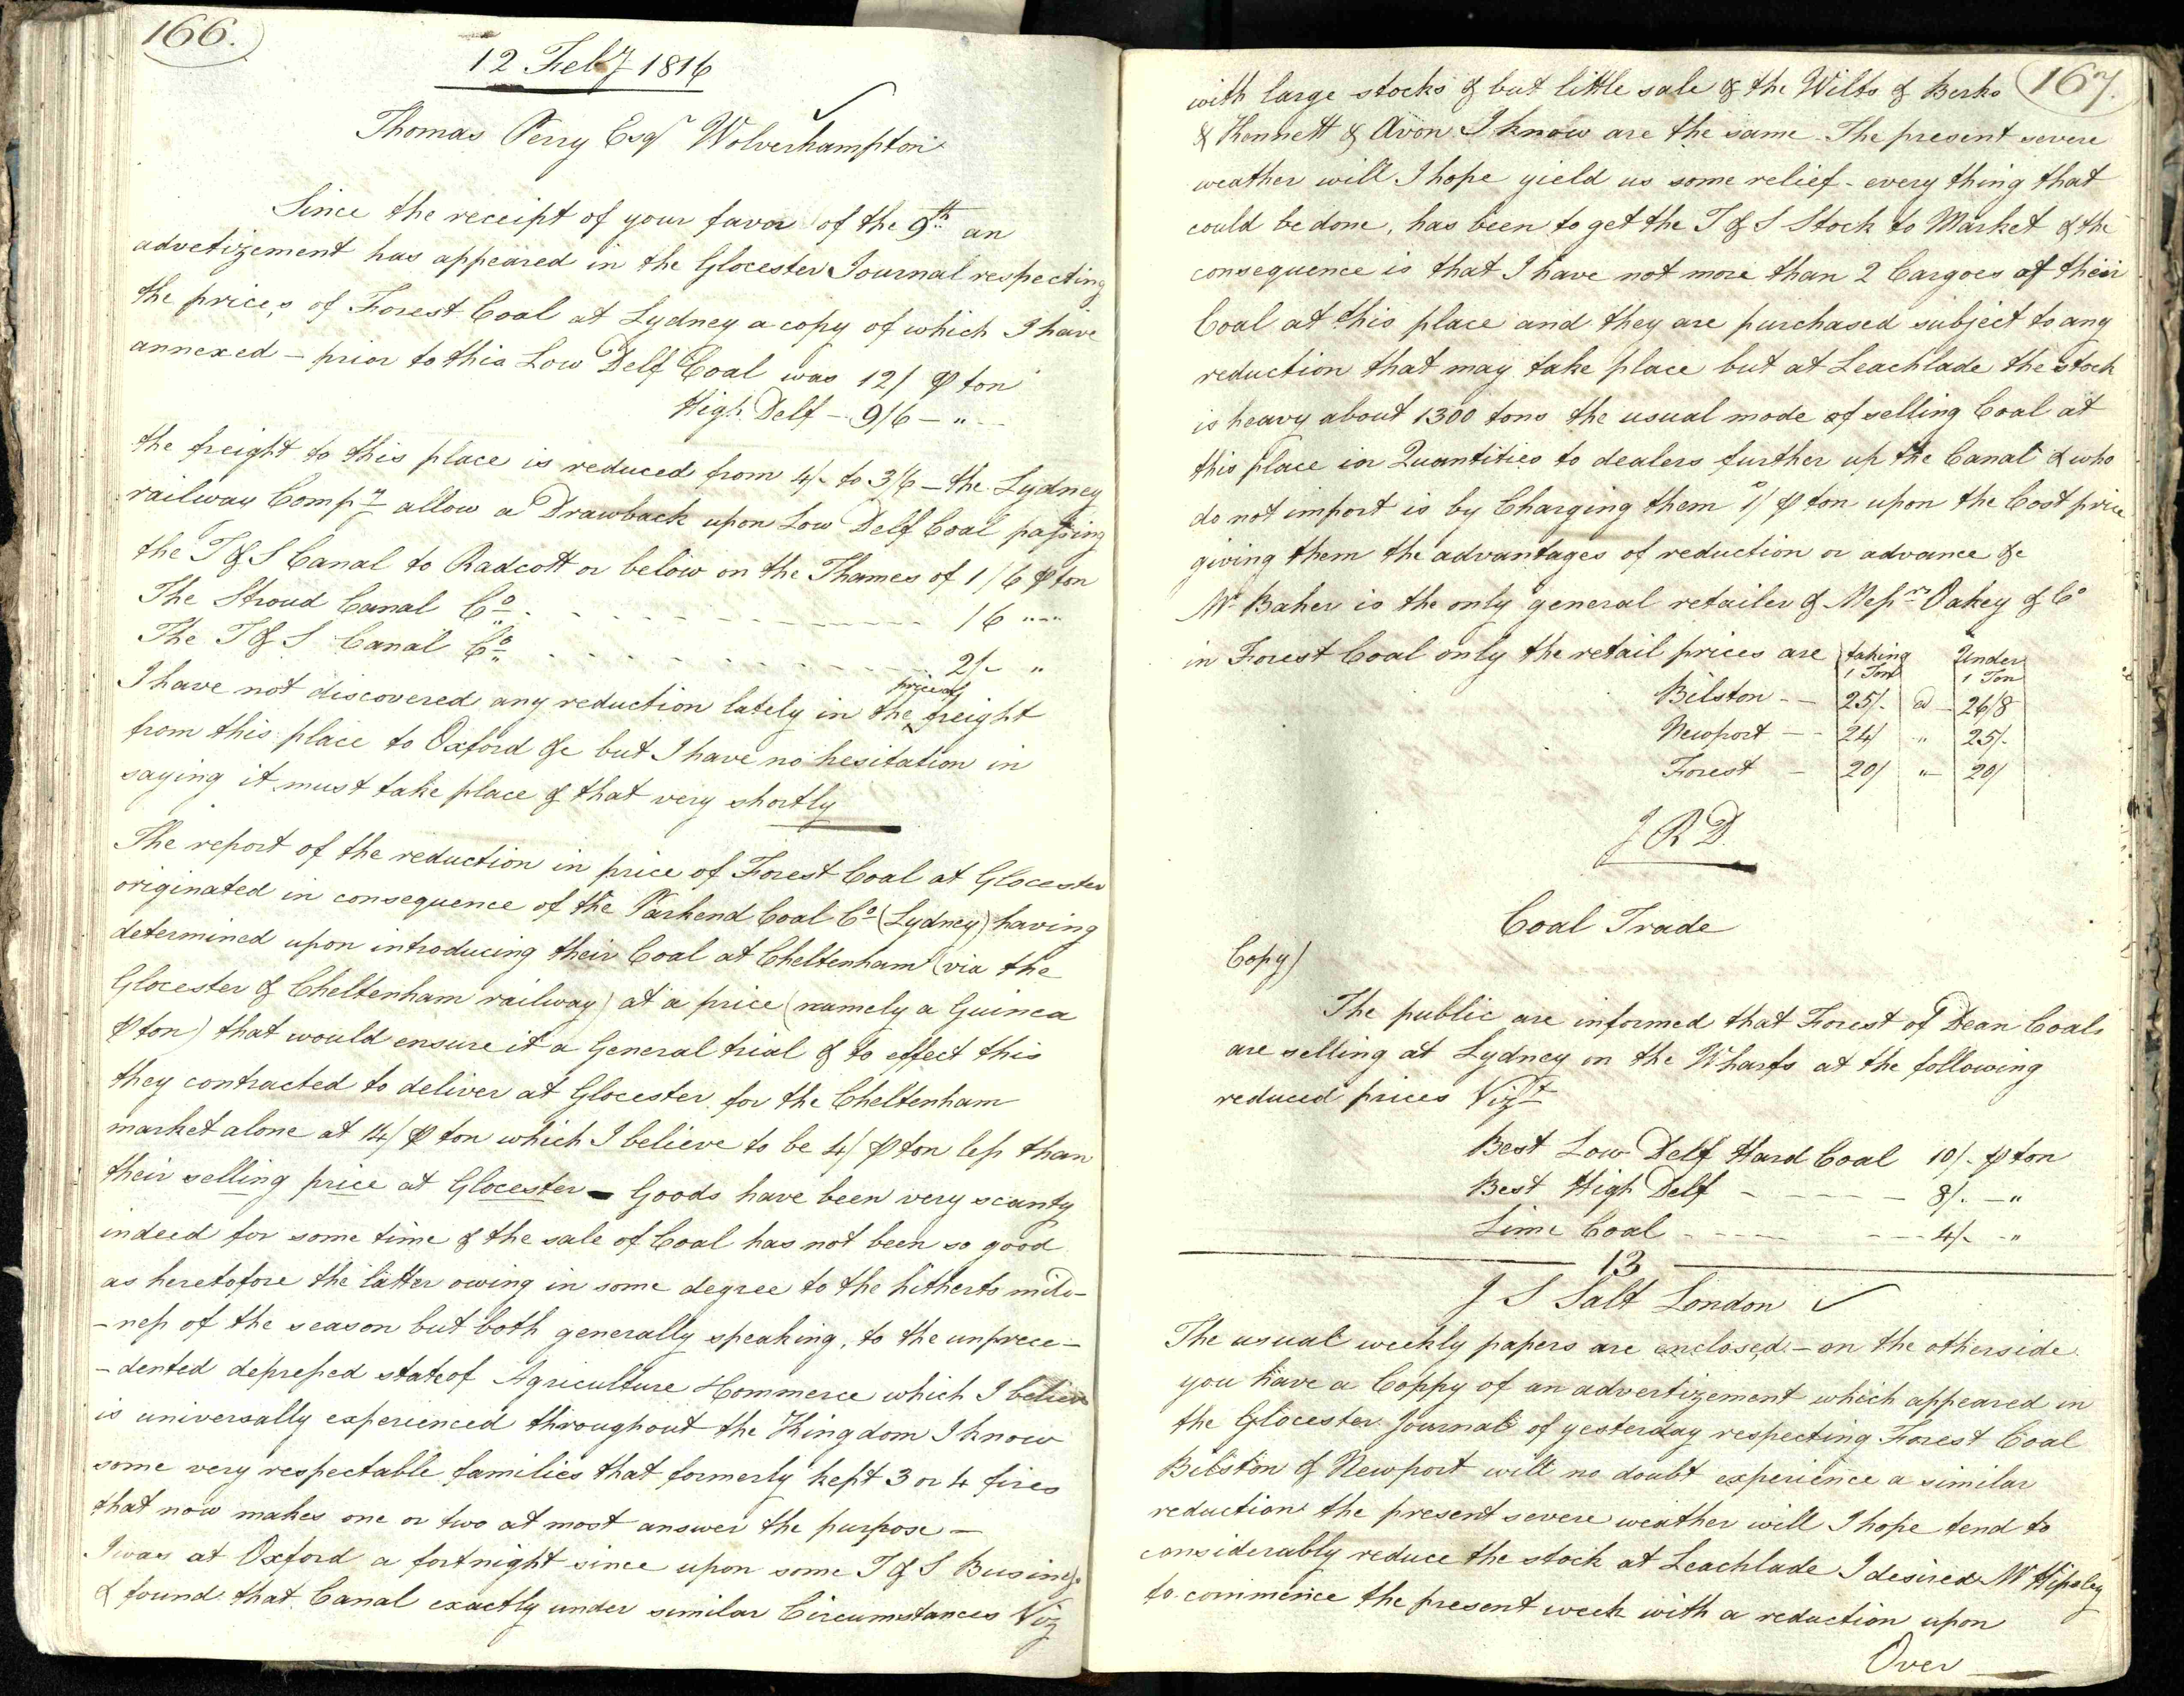 166.
12 Feby 1816
Thomas Perry Esqr Wolverhampton
Since the receipt of your favor of the 9th an
advetizement has appeared in the Glocester Journal respecting
the prices of Forest Coal at Lydney a copy of which I have
annexed – prior to this Low Delf Coal was 12/ ⅌ ton
High Delf – 9/6 – "
the freight to this place is reduced from 4/- to 3/6 – the Lydney
railway Compy allow a Drawback upon Low Delf Coal passing
the T & S Canal to Radcott or below on the Thames of 1/6 ⅌ ton
The Stroud Canal Co - - - - - - 16 " "
The T & S Canal Co - - - - - - 2/- "
I have not discovered any reduction lately in the price of freight
from this place to Oxford &c but I have no hesitation in
saying it must take place & that very shortly
The report of the reduction in price of Forest Coal at Glocester
originated in consequence of the Parkend Coal Co (Lydney) having
determined upon introducing their Coal at Cheltenham (via the
Glocester & Cheltenham railway) at a price (namely a Guinea
⅌ ton) that would ensure it a General trial & to effect this
they contracted to deliver at Glocester for the Cheltenham
market alone at 14/ ⅌ ton which I believe to be 4/ ⅌ ton less than
their selling price at Glocester – Goods have been very scanty
indeed for some time & the sale of Coal has not been so good
as heretofore the latter owing in some degree to the hitherto mild-
-ness of the season but both generally speaking, to the unprece-
-dented depressed state of Agriculture & Commerce which I believe
is universally experienced throughout the Kingdom I know
some very respectable families that formerly kept 3 or 4 fires
that now makes one or two at most answer the purpose –
I was at Oxford a fortnight since upon some T & S Business
& found that Canal exactly under similar Circumstances Viz
167.
with large stocks & but little sale & the Wilts & Berks
& Kennett & Avon I know are the same The present severe
weather will I hope yield us some relief - every thing that
could be done, has been to get the T & S Stock to Market & the
consequence is that I have not more than 2 Cargoes of their
Coal at this place and they are purchased subject to any
reduction that may take place but at Leachlade the stock
is heavy about 1300 tons the usual mode of selling Coal at
this place in Quantities to dealers further up the Canal & who
do not import is by Charging them 1/ ⅌ ton upon the Cost price
giving them the advantages of reduction or advance &c
Mr Baker is the only general retailer & Messrs Oakey & Co
in Forest Coal only the retail prices are
taking 1 Ton Under 1 Ton
Bilston - - 25/- 26/8
Newport - - 24/ " 25/-
Forest - 20/ " 20/
J R D.
Coal Trade
Copy)
The public are informed that Forest of Dean Coals
are selling at Lydney on the Wharfs at the following
reduced prices Vizt
Best Low Delf Hard Coal 10/- ⅌ ton
Best High Delf - - - - - 8/- – "
Lime Coal - - - - - - - 4/- - "
13
J S Salt London
The usual weekly papers are enclosed – on the otherside
you have a Coppy of an advertizement which appeared in
the Glocester Journal of yesterday respecting Forest Coal
Bilston & Newport will no doubt experience a similar
reduction the present severe weather will I hope tend to
considerably reduce the stock at Leachlade I desired Mr Hipsley
to commence the present week with a reduction upon
Over